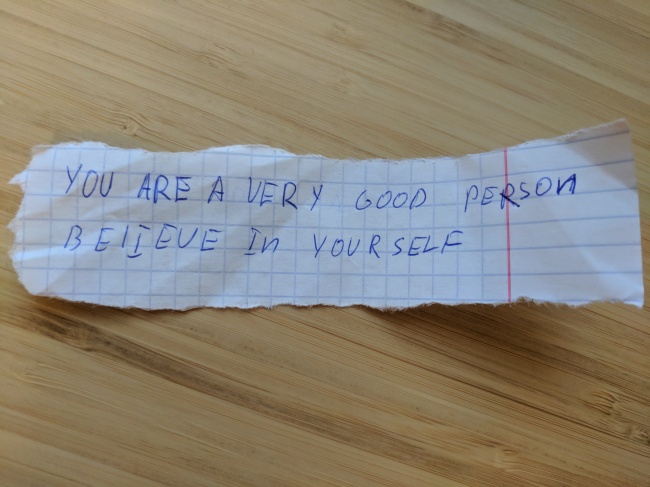 YOU ARE A VERY GOOD PERSON
BELIEVE IN YOURSELF